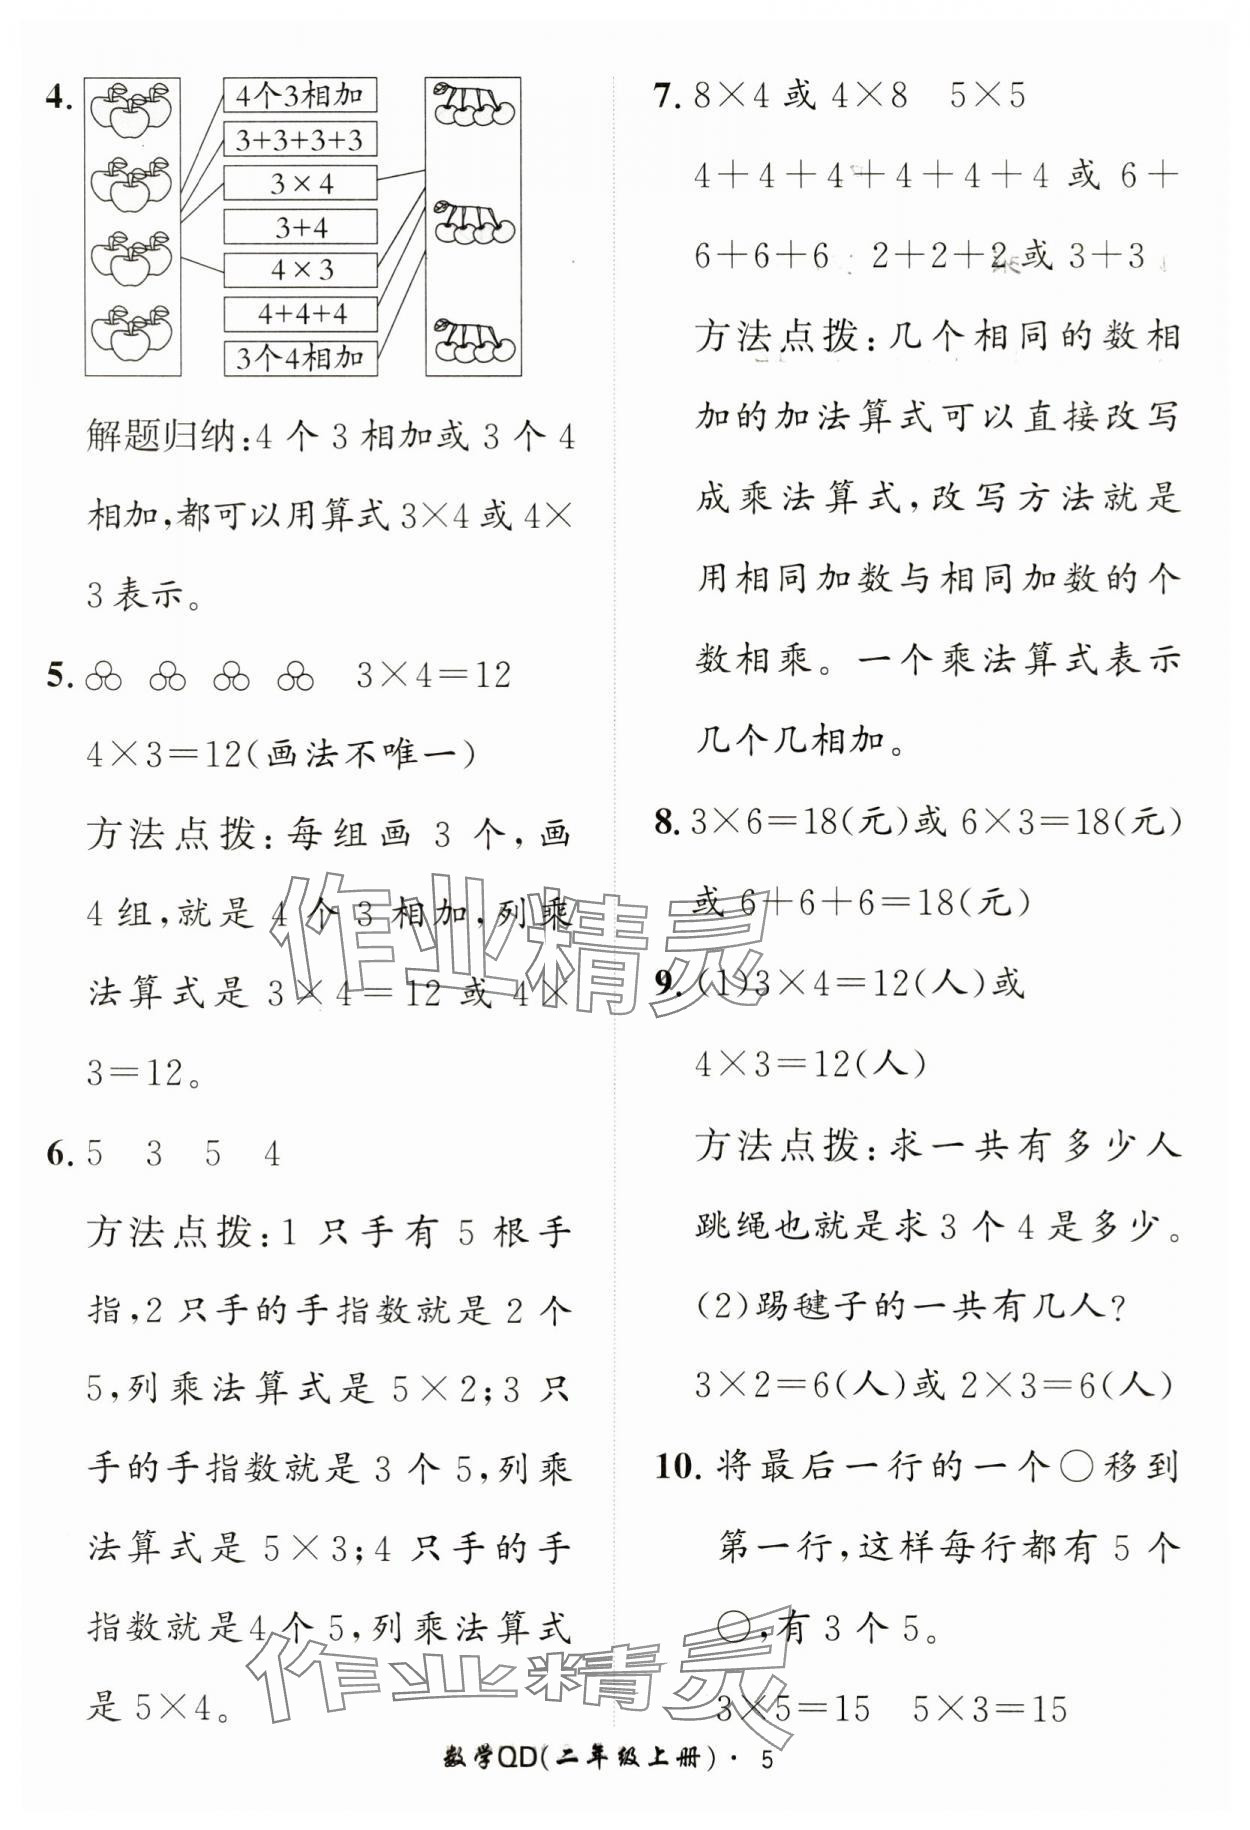 4.
4个3相加
3+3+3+3
3×4
3+4
4×3
4+4+4
3个4相加
解题归纳:4个3相加或3个4
相加,都可以用算式3×4或4×
3表示。
5. 3×4=12
4×3=12(画法不唯一)
方法点拨:每组画3个,画
4组,就是4个3相加,列乘
法算式是3×4=12或4×
3=12。
6. 5 3 5 4
方法点拨:1只手有5根手
指,2只手的手指数就是2个
5,列乘法算式是5×2;3只
手的手指数就是3个5,列乘
法算式是5×3;4只手的手
指数就是4个5,列乘法算式
是5×4。
7. 8×4或4×8 5×5
4+4+4+4+4+4或6+
6+6+6 2+2+2或3+3
方法点拨:几个相同的数相
加的加法算式可以直接改写
成乘法算式,改写方法就是
用相同加数与相同加数的个
数相乘。一个乘法算式表示
几个几相加。
8. 3×6=18(元)或6×3=18(元)
或6+6+6=18(元)
9. (1)3×4=12(人)或
4×3=12(人)
方法点拨:求一共有多少人
跳绳也就是求3个4是多少。
(2)踢毽子的一共有几人?
3×2=6(人)或2×3=6(人)
10. 将最后一行的一个○移到
第一行,这样每行都有5个
○,有3个5。
3×5=15 5×3=15
作业精灵
作业精灵
数学QD(二年级上册)·5